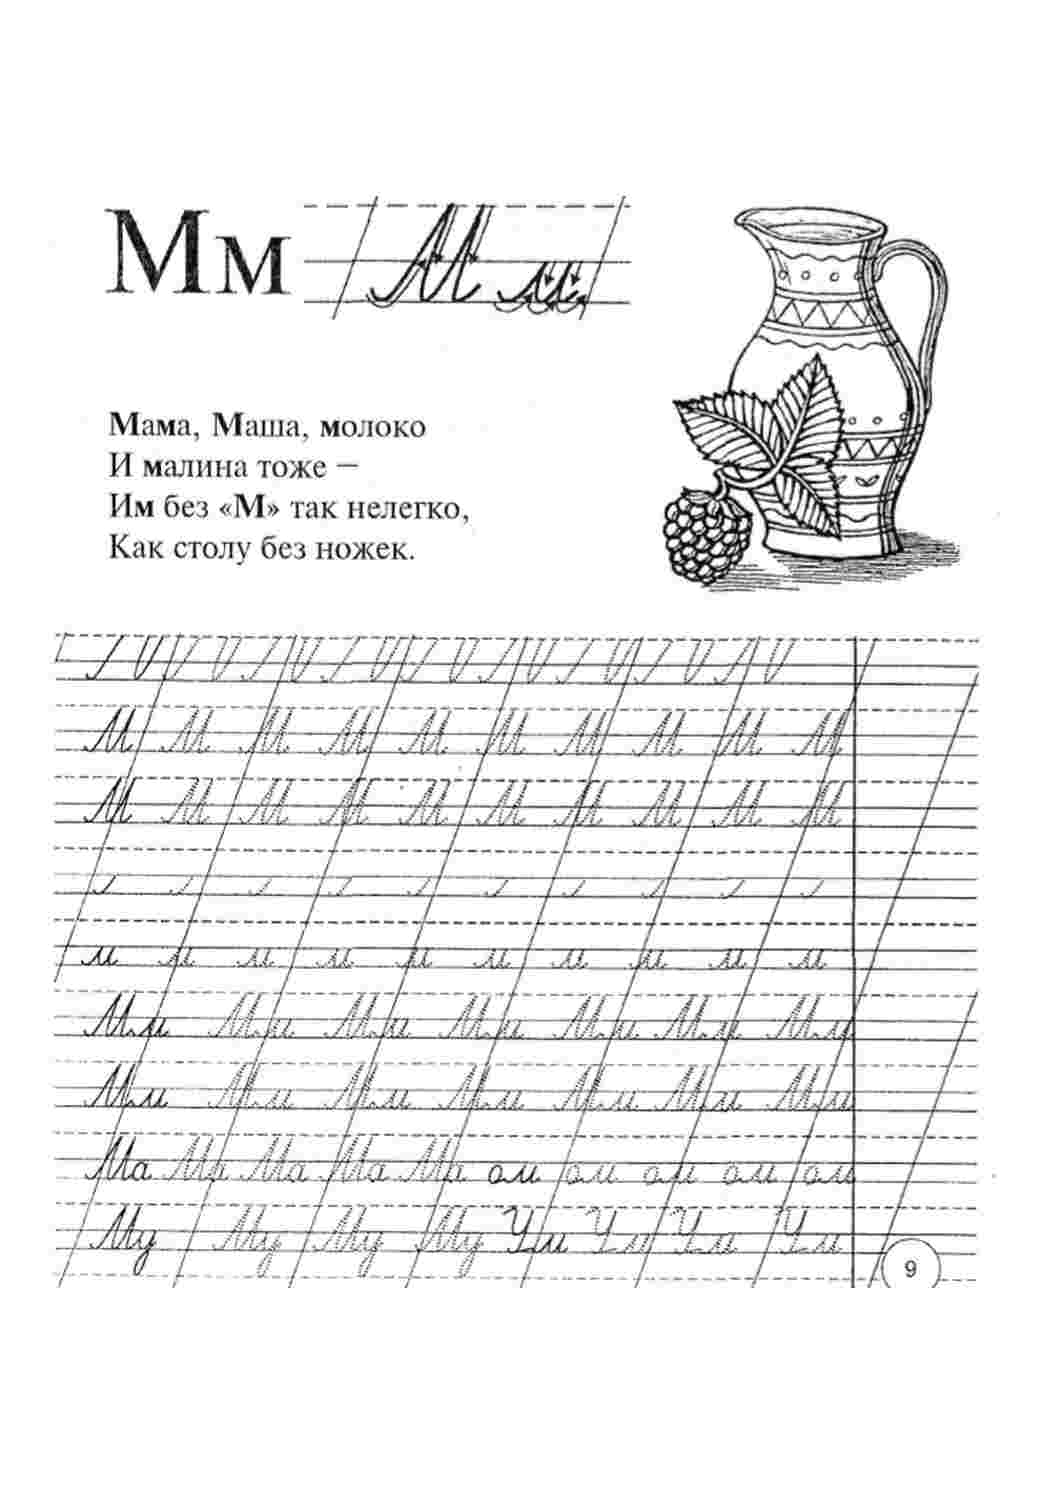 Мм М м
Мама, Маша, молоко
И малина тоже –
Им без «М» так нелегко,
Как столу без ножек.
М М М М М М М М М М
М М М М М М М М М М
м м м м м м м м м м
Мм Мм Мм Мм Мм Мм Мм
Мм Мм Мм Мм Мм Мм Мм
Ма Ма Ма Ма Ма ам ам ам ам ам
Му Му Му Му Ум Ум Ум Ум
9